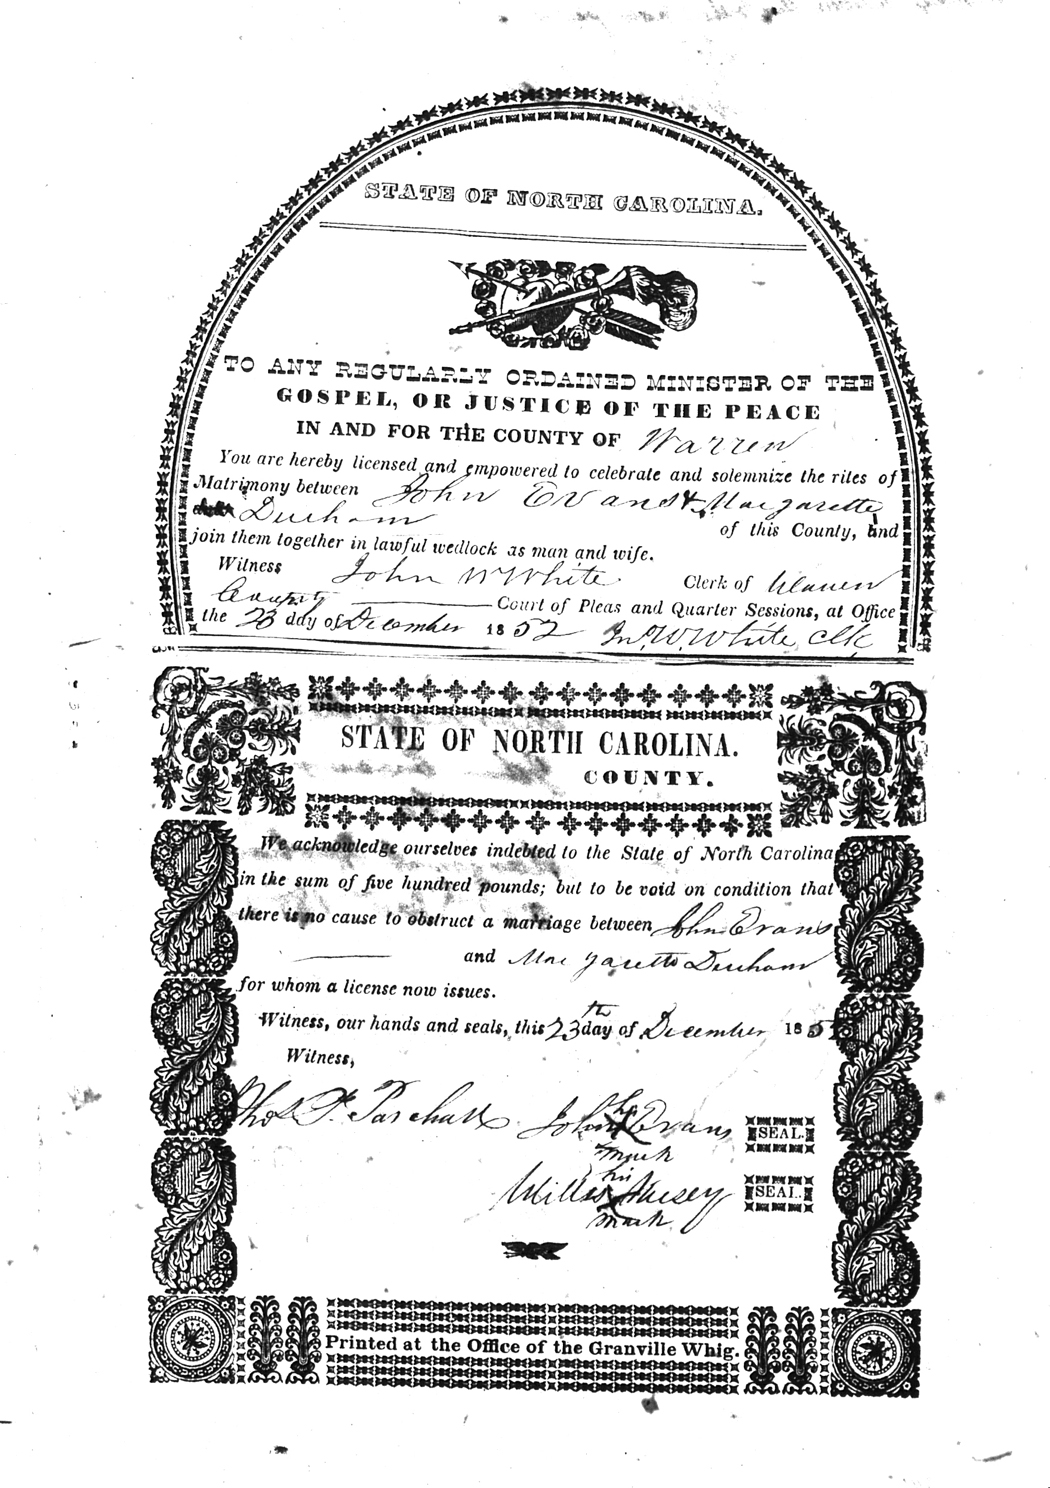 STATE OF NORTH CAROLINA.
TO ANY REGULARLY ORDAINED MINISTER OF THE
GOSPEL, OR JUSTICE OF THE PEACE
IN AND FOR THE COUNTY OF Warren
You are hereby licensed and empowered to celebrate and solemnize the rites of
Matrimony between John Evans & Margarette
Durham of this County, and
join them together in lawful wedlock as man and wife.
Witness John W White Clerk of Warren
County Court of Pleas and Quarter Sessions, at Office
the 23 day of December 1852 Jno. W. White, Clk
STATE OF NORTH CAROLINA.
COUNTY.
We acknowledge ourselves indebted to the State of North Carolina
in the sum of five hundred pounds; but to be void on condition that
there is no cause to obstruct a marriage between John Evans
and Margarette Durham
for whom a license now issues.
Witness, our hands and seals, this 23th day of December 185
Witness,
Thos P. John his X Evans SEAL.
mark
Willis his X SEAL.
mark
Printed at the Office of the Granville Whig.